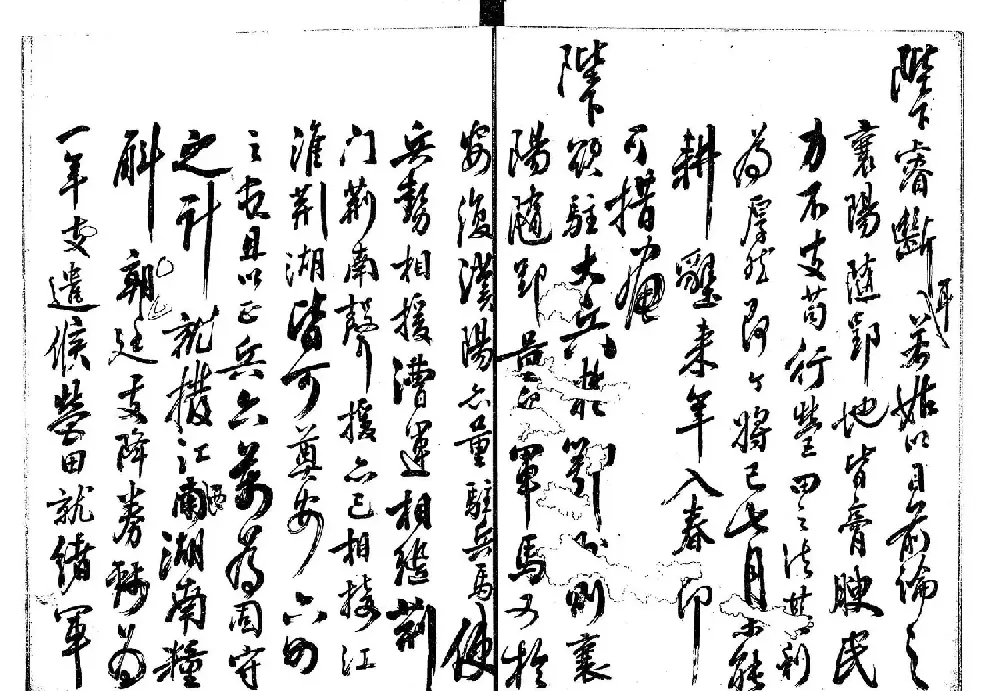 陛下睿斷耳若姑以目前論之
襄陽隨郢地皆膏腴民
力不支苟行營田之法其利
為厚然即今將已七月未能
耕墾來年入春即
可措畫
陛下欲駐大兵於鄂州則襄
陽隨郢量留軍馬又於
安復漢陽亦量駐兵馬使
兵勢相援漕運相繼荊
门荊南聲援亦已相接江
淮荊湖皆可奠安六州
之屯且以正兵六萬為固守
之計就撥江西南湖南糧
斛朝廷支降券錢為
一年支遣候營田就緒軍